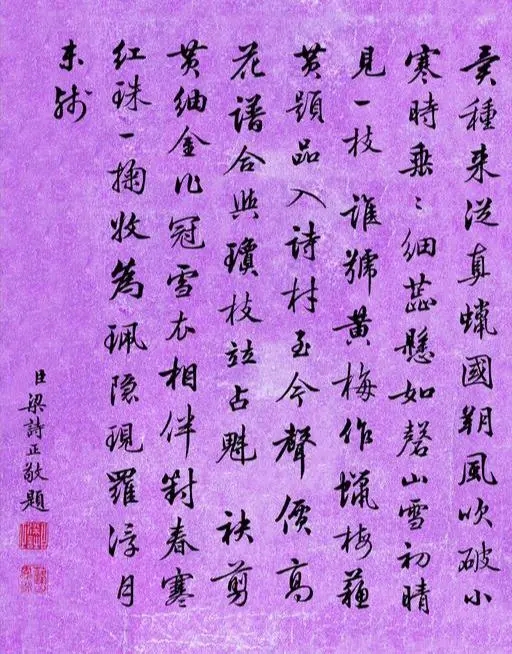 異種来從真蠟國朔風吹破小
寒時垂〻細蕊懸如磬山雪初晴
見一枝 誰號黃梅作蠟梅蘇
黃題品入詩材至今聲價高
花譜合與瓊枝竝占魁 袂剪
黃紬金作冠雪衣相伴對春寒
紅珠一掬收為珮隱現羅浮月
未殘
臣梁詩正敬題